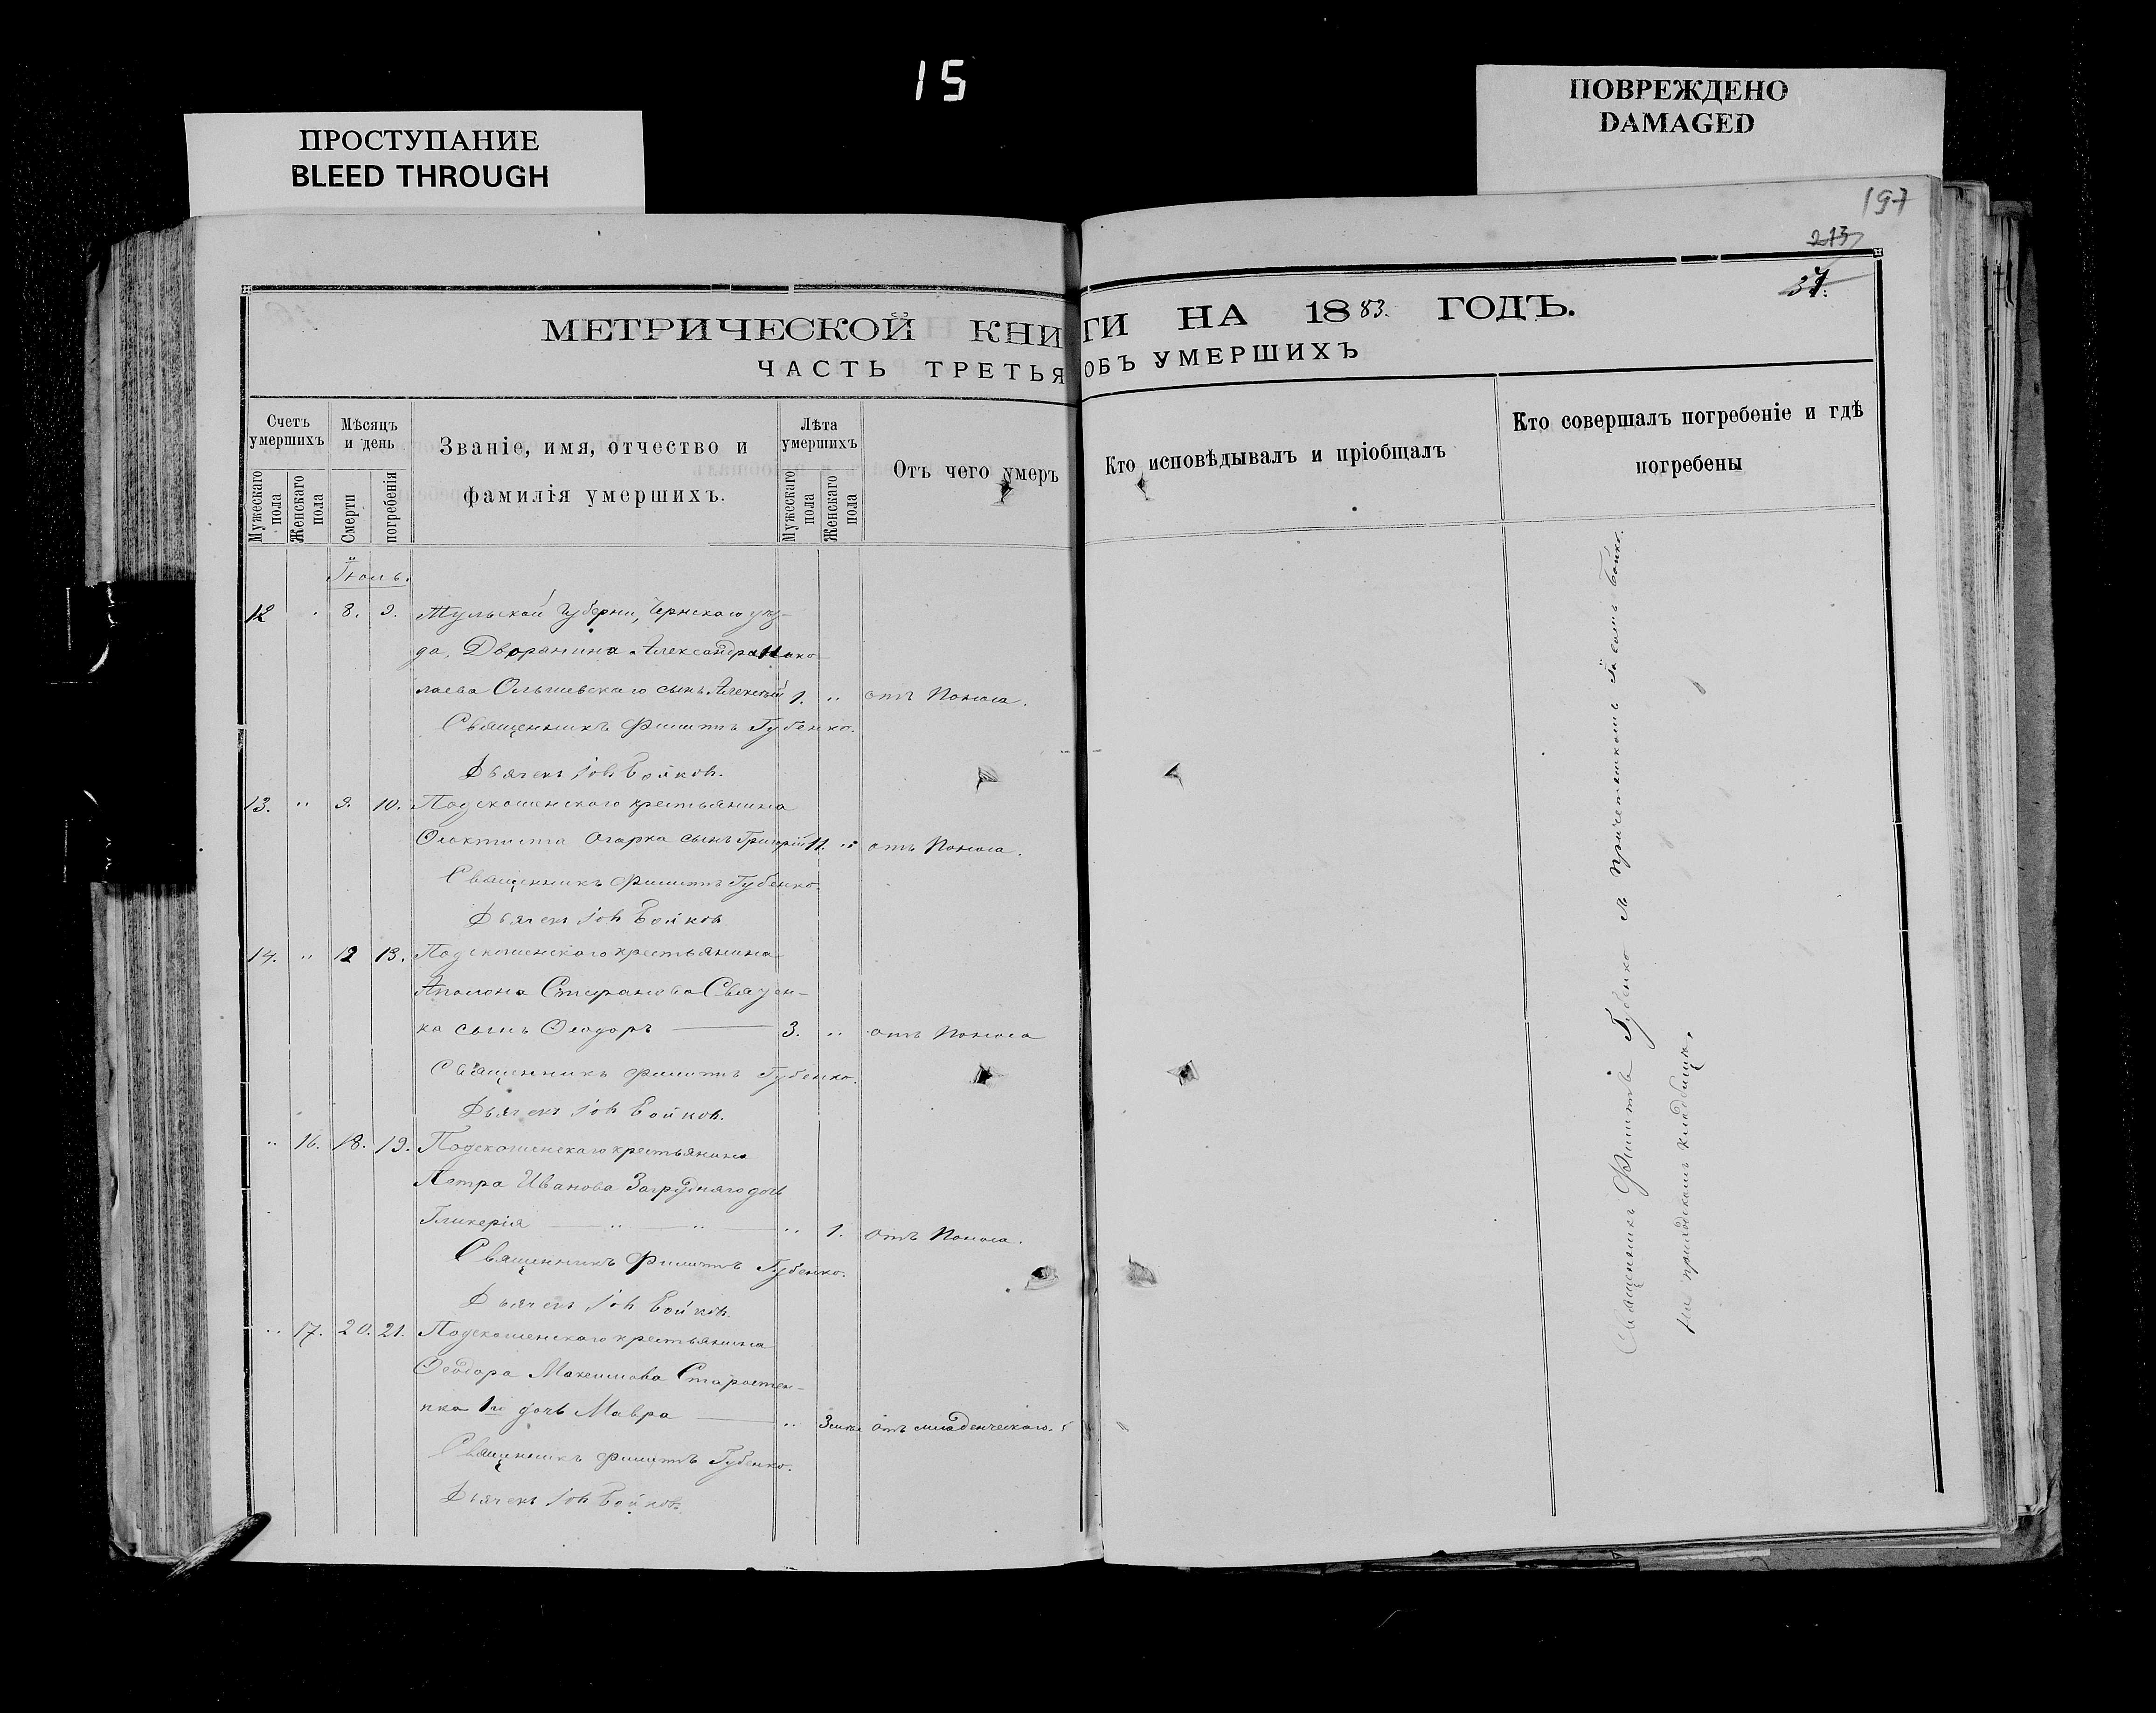 15
ПРОСТУПАНИЕ
BLEED THROUGH
ПОВРЕЖДЕНО
DAMAGED
197
273
37.
МЕТРИЧЕСКОЙ КНИГИ НА 1883. ГОДЪ.
ЧАСТЬ ТРЕТЬЯ ОБЪ УМЕРШИХЪ
Счетъ умершихъ
Мужескаго пола
Женскаго пола
Мѣсяцъ и день
Смерти
погребенія
Званіе, имя, отчество и
фамилія умершихъ.
Лѣта умершихъ
Мужескаго пола
Женскаго пола
Отъ чего умеръ
Кто исповѣдывалъ и пріобщалъ
Кто совершалъ погребеніе и гдѣ
погребены
Іюль.
12 8. 9. Тульской Губерніи, Чернскаго уѣз-
да, Дворянина Александра Нико-
лаева Ольшевскаго сынъ Алексѣй 1. " отъ Поноса.
Священникъ Филиппъ Губенко.
Дьячекъ Іовъ Бойковъ.
13. " 9. 10. крестьянина
Ѳеоктиста Огарка сынъ Григорій 11. " отъ Поноса.
Священникъ Филиппъ Губенко.
Дьячекъ Іовъ Бойковъ
14. " 12 13. крестьянина
Стефанова
ка сынъ Ѳеодоръ 3. " отъ Поноса
Священникъ Филиппъ Губенко.
Дьячекъ Іовъ Бойковъ.
" 16. 18. 19. крестьянина
Петра Иванова дочь
Гликерія " " " 1. отъ Поноса.
Священникъ Филиппъ Губенко.
Дьячекъ Іовъ Бойковъ.
" 17. 20. 21. крестьянина
Ѳеодора Максимова Старостен-
1го дочь Мавра " отъ младенческаго.
Священникъ Филиппъ Губенко.
Дьячекъ Іовъ Бойковъ.
Священникъ Филиппъ Губенко съ причетникомъ Бойко.
на приходскомъ кладбищѣ.